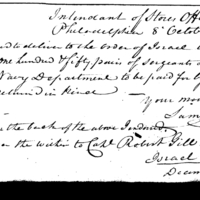 Intendant of Stores Off
Philadelphia 8 Octob
to deliver to the order of Israel
one hundred & fifty pairs of sergeants
Navy Department to be paid for
returned in kind
Your mo
Sam
the back of the above Indorsed
the within to Capt Robert Gill
Israel
Decem